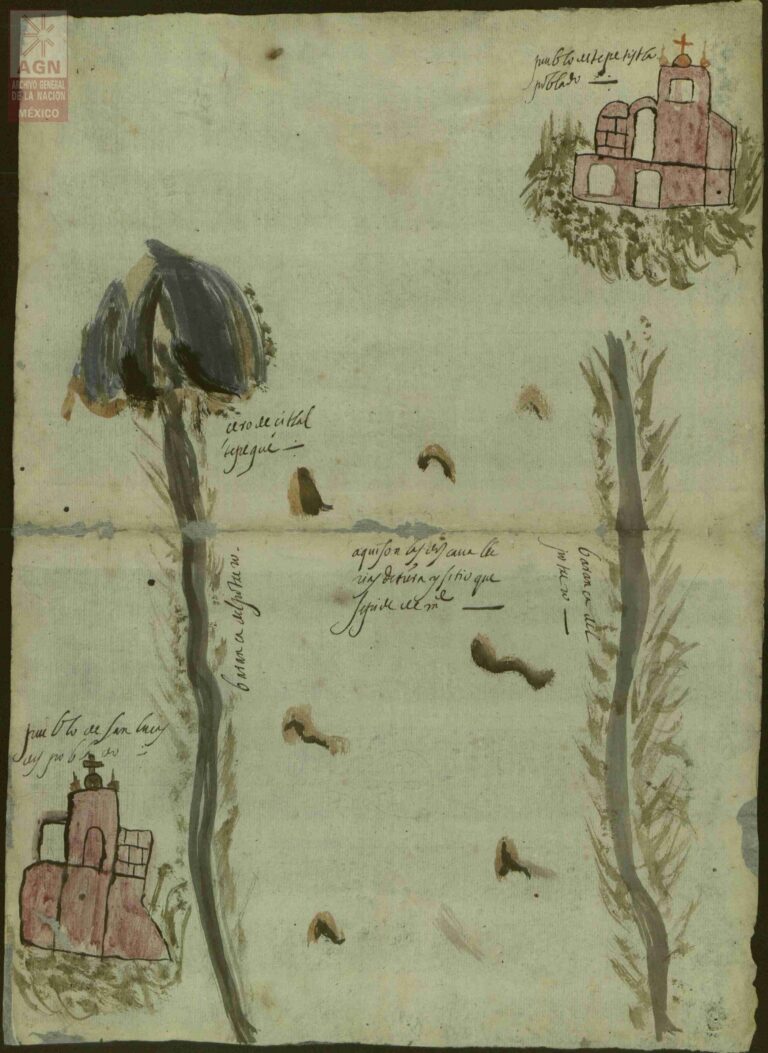 AGN
ARCHIVO GENERAL
DE LA NACIÓN
MÉXICO
pueblo de tepetistla
poblado
sero de citlal
tepeque
aqui son las dos cavalle
rias de tiera y sitio que
se pide de md
baranca del potrero
baranca del
potrero
pueblo de san lucas
des poblado